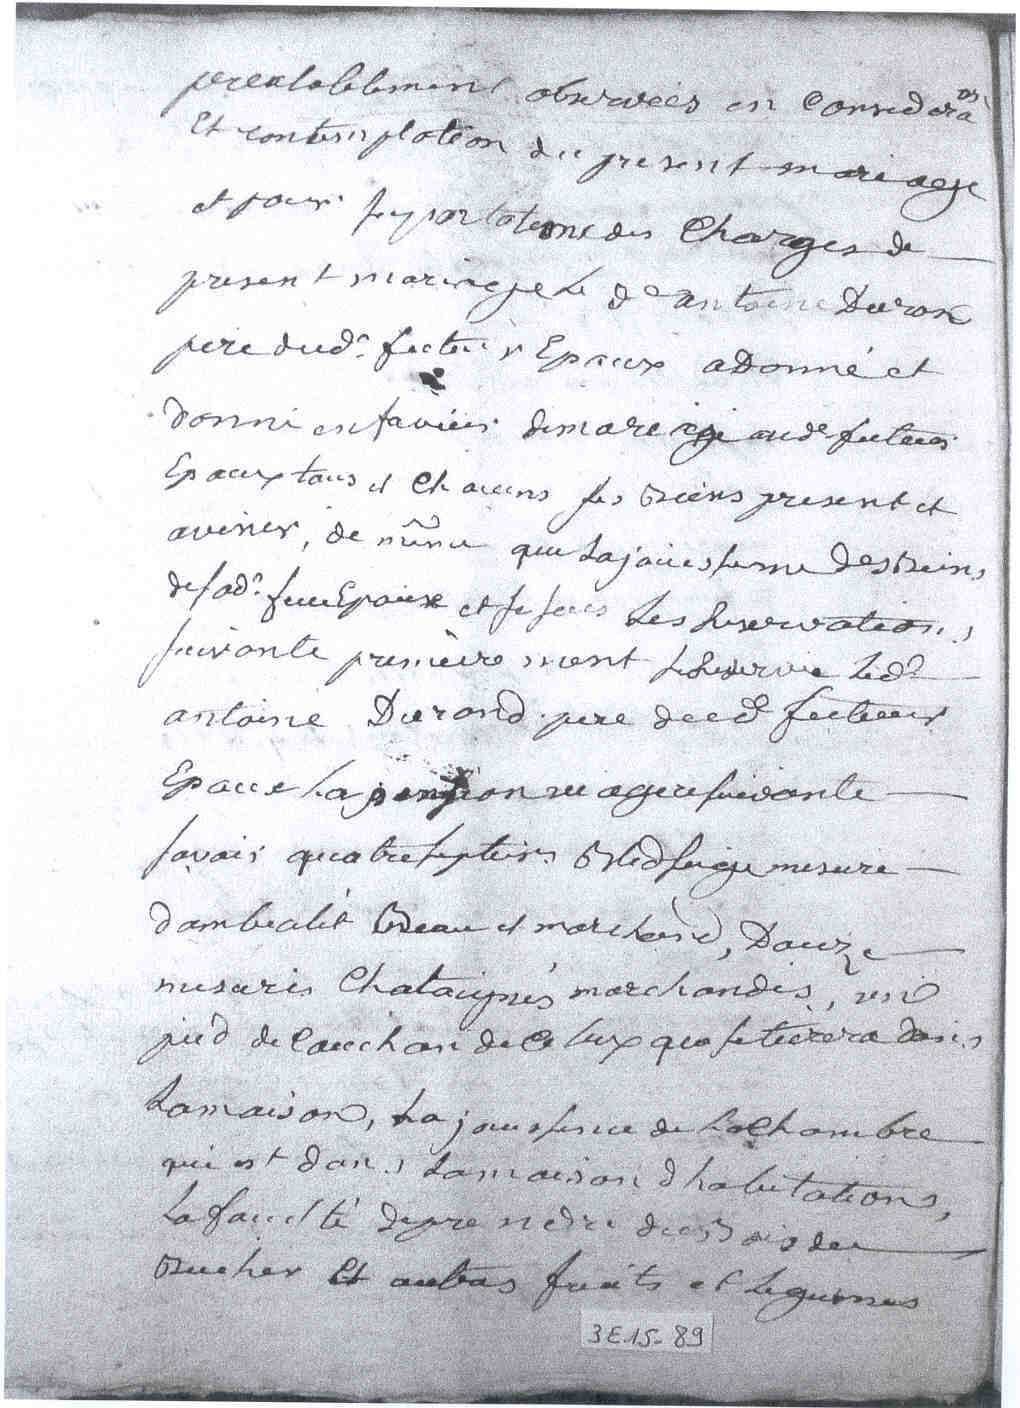 prealablement observées en considera
on
Et contemplation du present mariage
et pour suportation des Charges de
present mariage le dt antoine Duron
pere dud. futeur Epoux a Donné et
donne en faveur de mariage aud. futeur
Epoux tous et Chacuns ses Biens present et
avenir, de même que la jouissence des Biens
de sad. feue Epouse et se sous les Reservations
suivante premierement se Reserve led.
antoine Durond pere dud. futeur
Epoux la pension viagere suivante
savoir quatre septiers Bled seigle mesure
dambialet Beau et marchand, Douze
mesures Chataignes marchandes, un
pied de Cauchon de Ceux que se tuera dans
Lamaison, La jouissence de La Chambre
qui est dans Lamaison dhabitations,
La faculté de prendre du Bois du
Bucher Et autres fruits et Legumes
3E15-89